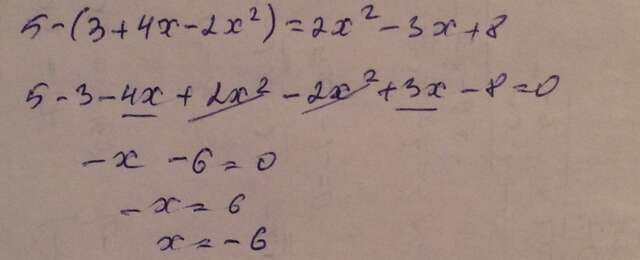 5-(3+4x-2x²)=2x²-3x+8
5-3-4x+2x²-2x²+3x-8=0
-x -6=0
-x=6
x=-6